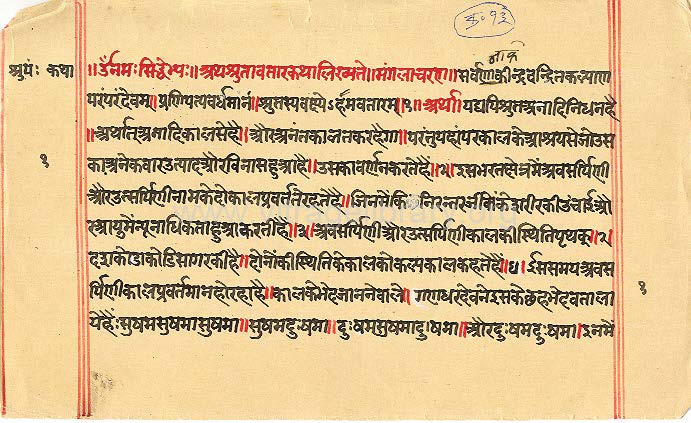 क्र॰ १३
नाकि
श्रुयं: कथा
॥उँनमःसिद्धेभ्यः॥अथश्रुतावतारकथालिख्यते॥मंगलाचरण॥सर्वणकीन्द्रवन्दितकल्याण
परंपरंदेवम॥प्रणिपत्यवर्धमानं॥श्रुतस्यवक्ष्येऽहमवतारम्॥१॥अर्थ॥यद्यपिश्रुतअनादिनिधनहै
॥अर्थात्अनादिकालसेहै॥औरअनंतकालतकरहेगा॥परंतुयहांपरकालकेआश्रयसेजोउस
१
काअनेकवारउत्पादऔरविनासहुआहै॥उसकावर्णनकरतेहैं॥२॥इसभरतक्षेत्रमेंअवसर्पिणी
औरउत्सर्पिणीनामकेदोकालप्रवर्ततेरहतेहैं॥जिनमेंकिनिरन्तरजीवोंकेशरीरकीउंचाईऔ
रआयुमेंन्यूनाधिकताहुआकरतीहै॥३॥अवसर्पिणीऔरउत्सर्पिणीकालकीस्थितिपृथक्॥२॥
दशकोडाकोडिसागरकीहै॥दोनोंकीस्थितिकेकालकोकल्पकालकहतेहैं॥४॥ईससमयअवस
र्पिणीकालप्रवर्तमानहोरहाहै॥कालकेभेदजाननेवाले॥गणधरदेवनेइसकेछहभेदबताला
१
येहैं:सुषमसुषमासुषमा॥सुषमदुःषमा॥दुःषमसुषमादुःषमा॥औरदुःषमदुःषमा॥इनमें